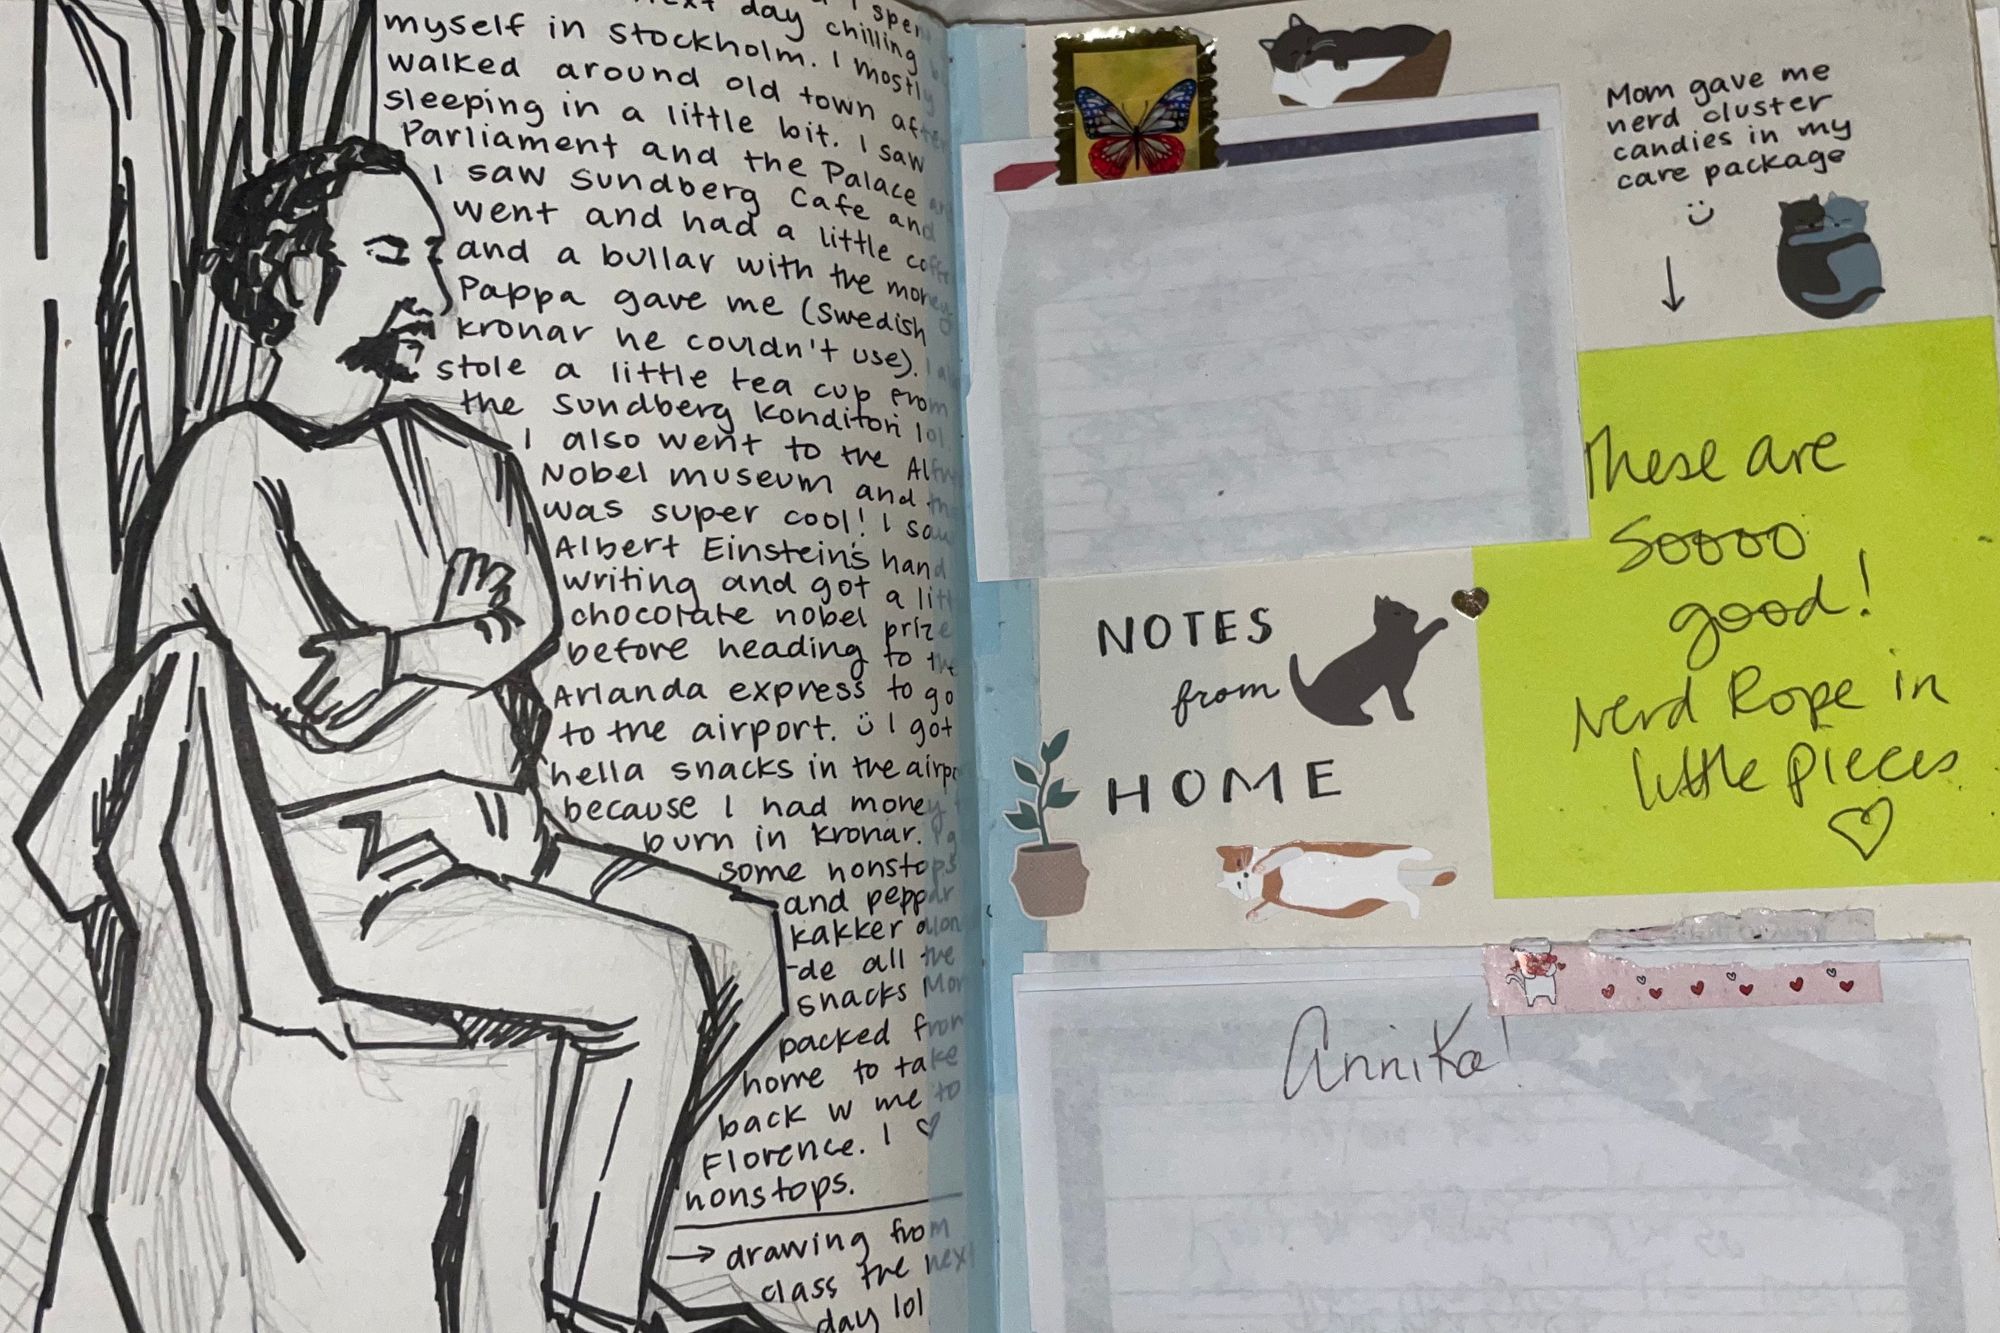 next day I spen
day chilling
myself in stockholm. I mostly
walked around old town after
sleeping in a little bit. I saw
Parliament and the Palace and
I saw Sundberg Cafe and
went and had a little coffee
and a bullar with the money
Pappa gave me (Swedish
kronar he couldn't use). I also
stole a little tea cup from
the Sundberg Konditori lol.
I also went to the Alfred
Nobel museum and
was super cool! I saw
Albert Einstein's hand
writing and got a little
chocolate nobel prize
before heading to the
Arlanda express to go
to the airport. ü I got
hella snacks in the airport
because I had money to
burn in kronar. I got
some nonstops
and peppar
kakker along
-de all the
snacks Mor
packed from
home to take
back w me to
Florence. I ♡
nonstops.
→ drawing from
class the next
day lol
Mom gave me
nerd cluster
candies in my
care package
ü
↓
These are
Soooo
good!
Nerd Rope in
little pieces
♡
NOTES
from
HOME
Annika!